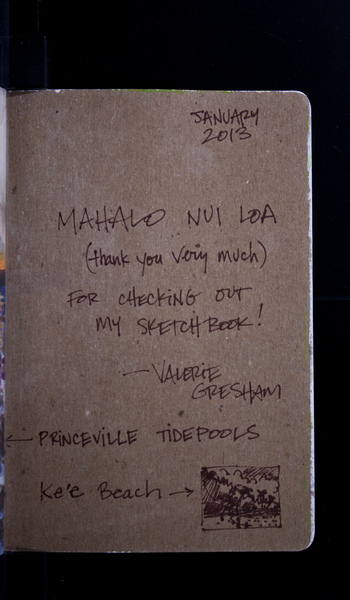 JANUARY
2013
MAHALO NUI LOA
(thank you very much)
FOR CHECKING OUT
MY SKETCHBOOK!
— VALERIE
GRESHAM
← PRINCEVILLE TIDEPOOLS
Ke'e Beach →